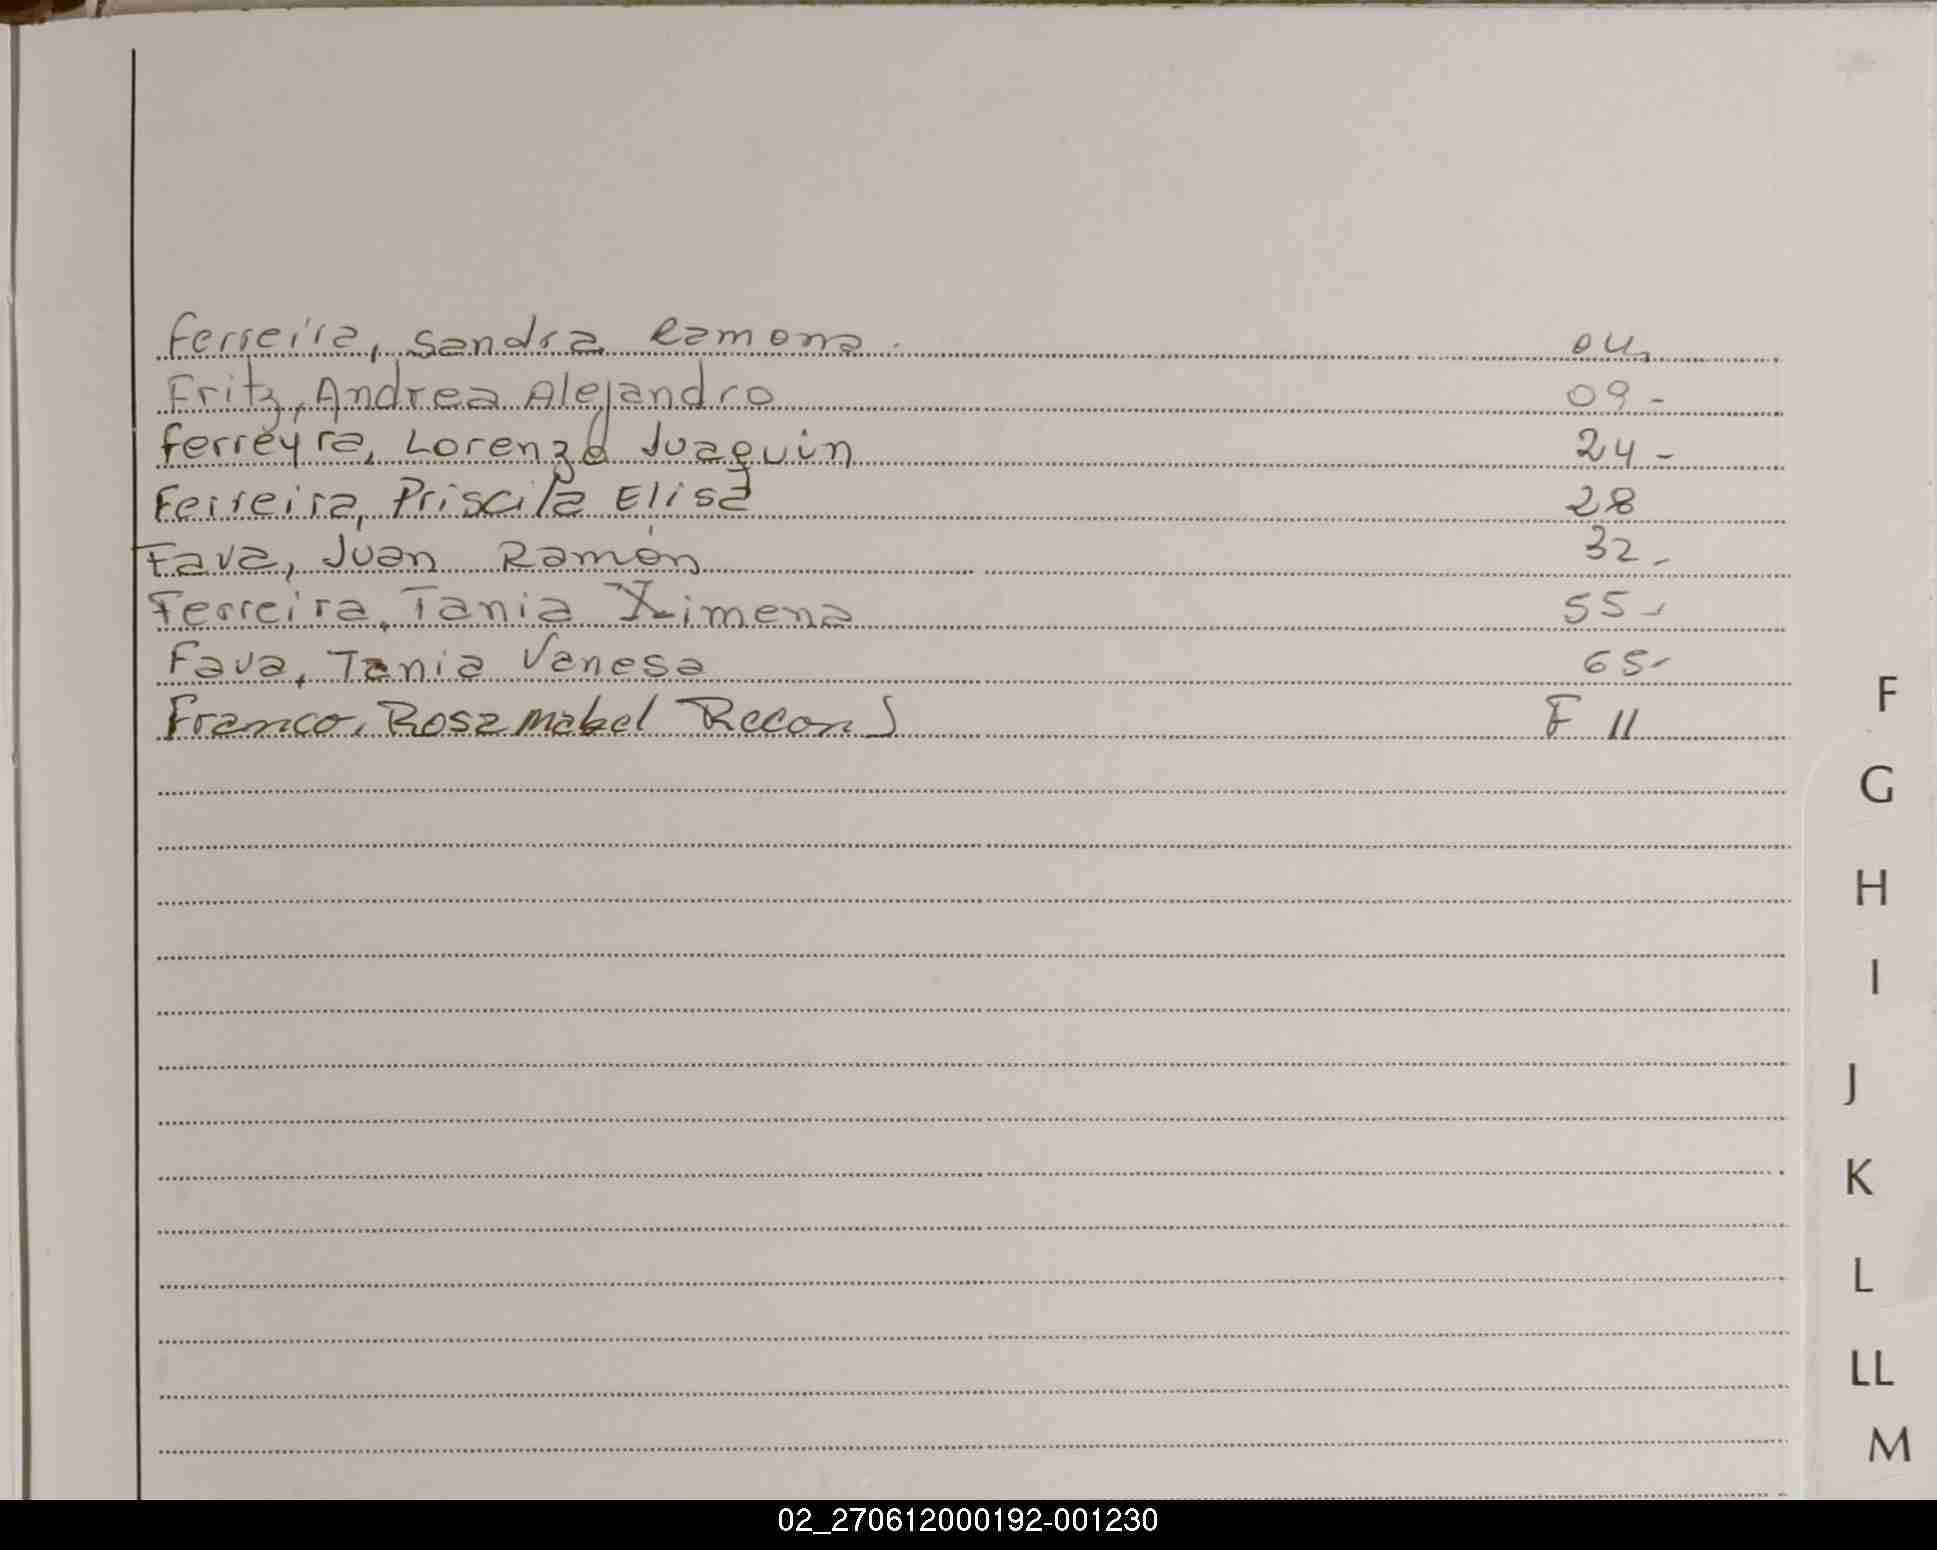 Ferreira, Sandra Ramona. 04,
Fritz, Andrea Alejandro 09-
Ferreyra, Lorenzo Juaquin 24-
Ferreira, Priscila Elisa 28
Fava, Juan Ramón 32-
Ferreira, Tania Ximena 55-
Fava, Tania Vanesa 65-
Franco, Rosa Mabel Recon) F 11
F
G
H
I
J
K
L
LL
M
02_270612000192-001230